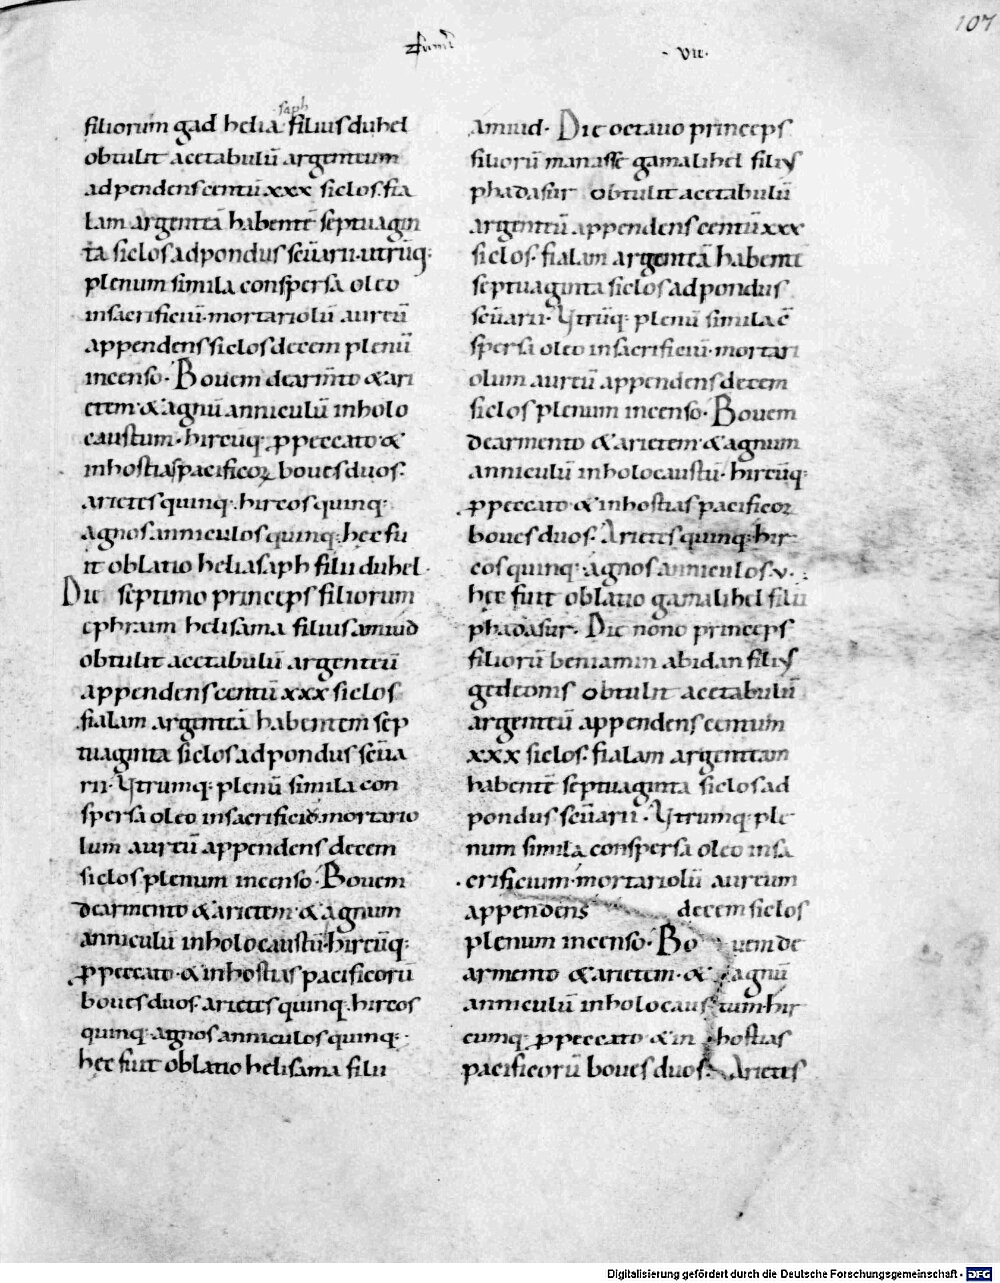 107
· VII ·
saph
filiorum gad helia filius duhel
obtulit acetabulū argenteum
adpendens centū xxx siclos. fia
lam argenteā habentē septuagin
ta siclos ad pondus sc̄uarii. utrūq:
plenum simila conspersa oleo
in sacrificiū. mortariolū aureū
appendens siclos decem plenū
incenso. Bovem de arm̄to & ari
etem & agnū anniculū in holo
caustum. hircūq: ꝓ peccato &
in hostias pacificoꝝ boves duos.
arietes quinq. hircos quinq:
agnos anniculos quinq. hęc fu
it oblatio heliasaph filii duhel.
Die septimo princeps filiorum
ephraim helisama filius amiud
obtulit acetabulū argenteū
appendens centū xxx siclos
fialam argenteā habentem sep
tuaginta siclos ad pondus sc̄ua
rii. Utrumq. plenū simila con
spersa oleo in sacrificiū. mortario
lum aureū appendens decem
siclos plenum incenso. Bovem
de armento & arietem & agnum
anniculū in holocaustū. hircūq:
ꝓ peccato & in hostias pacificorū
boves duos. arietes quinq. hircos
quinq: agnos anniculos quinq:.
hęc fuit oblatio helisama filii
amiud. Die octavo princeps
filiorū manassē gamalihel filius
phadasur obtulit acetabulū
argenteū appendens centū xxx
siclos. fialam argenteā habente
septuaginta siclos ad pondus
sc̄uarii. Utrūq. plenū simila cō
spersa oleo in sacrificiū. mortari
olum aureū appendens decem
siclos plenum incenso. Bovem
de armento & arietem & agnum
anniculū in holocaustū. hircūq:
ꝓ peccato & in hostias pacificoꝝ
boves duos. Arietes quinq: hir
cos quinq: agnos anniculos. v.
hęc fuit oblatio gamalihel filii
phadasur. Die nono princeps
filiorū beniamin abidan filius
gedeonis obtulit acetabulū
argenteū appendens centum
xxx siclos. fialam argenteam
habentē septuaginta siclos ad
pondus sc̄uarii. Utrumq. ple
num simila conspersa oleo in sa
crificium. mortariolū aureum
appendens decem siclos
plenum incenso. Bo vem de
armento & arietem. & agnū
anniculū in holocaus tum. hir
cumq: ꝓ peccato & in hostias
pacificorū boves duos. Arietes
Digitalisierung gefördert durch die Deutsche Forschungsgemeinschaft - DFG